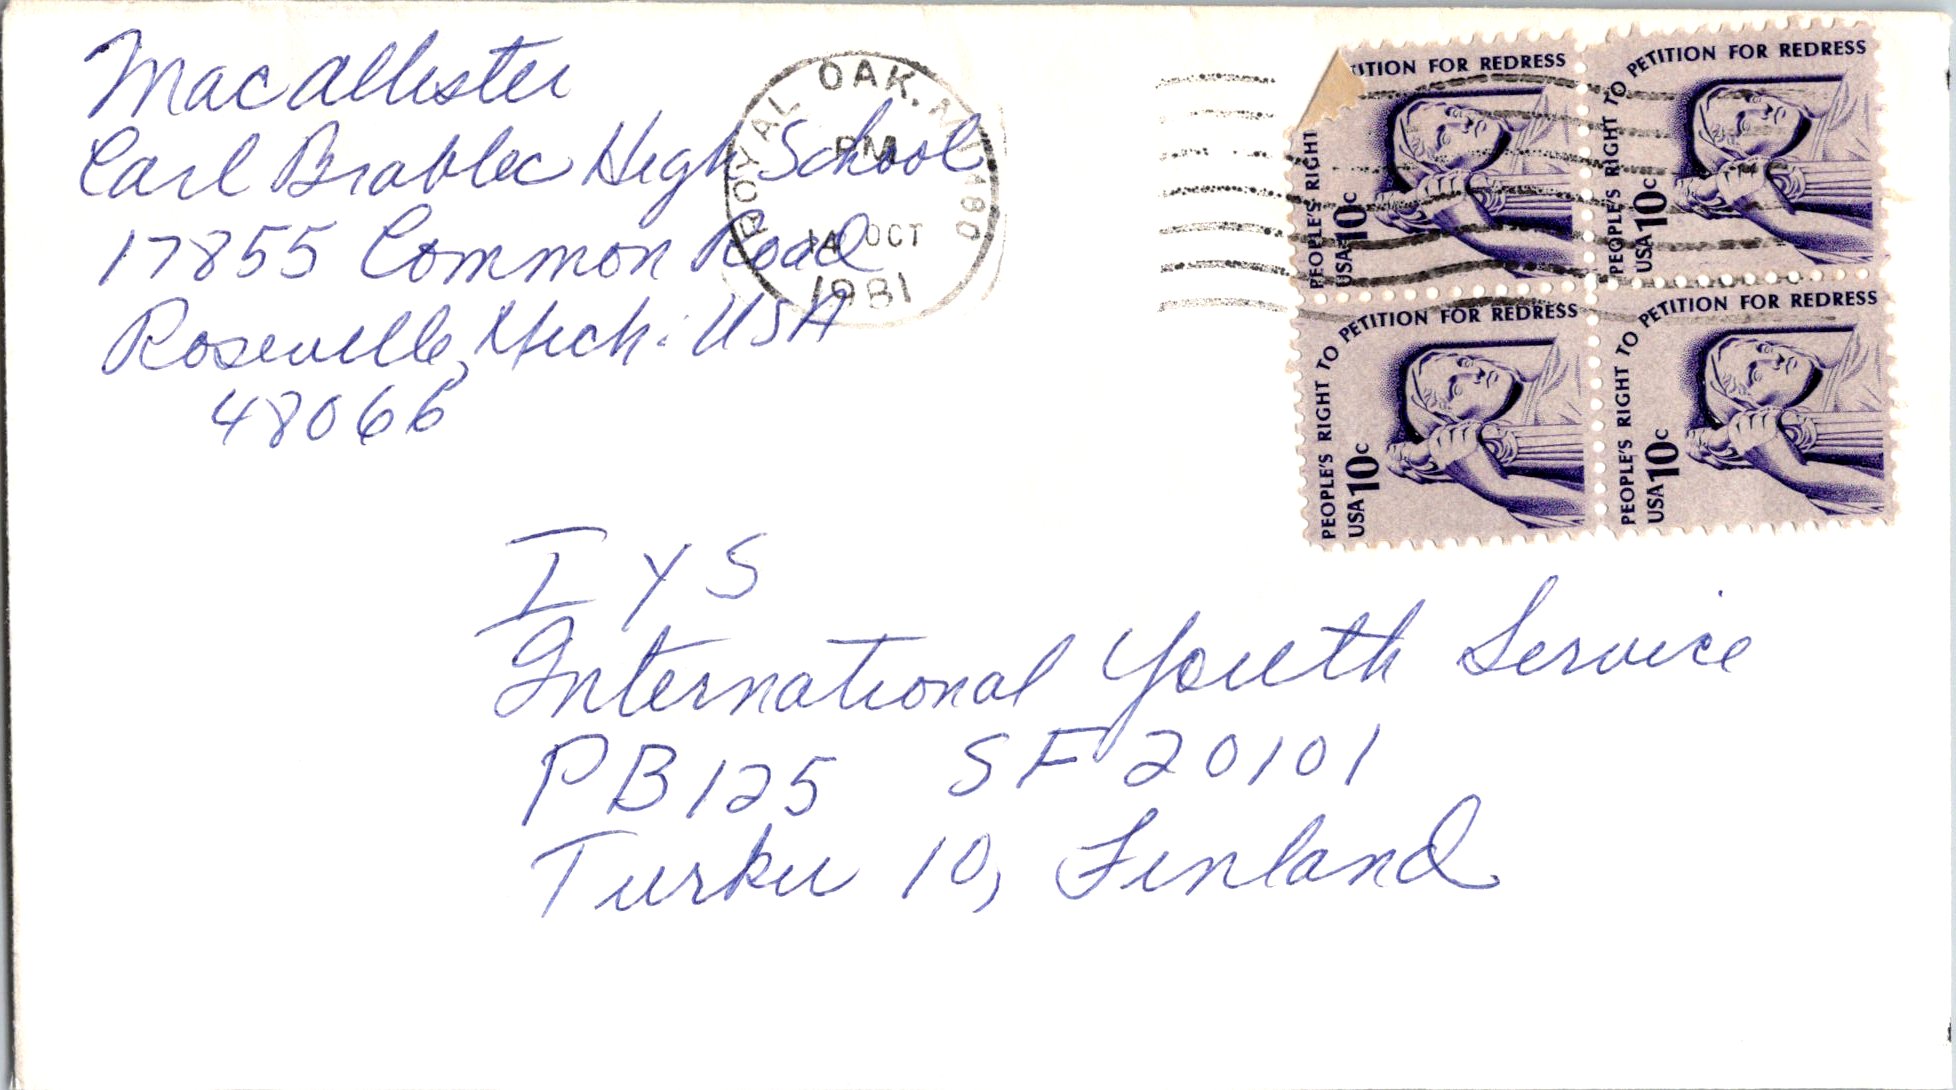 Macallister
Carl Brablec High School
17855 Common Road
Roseville, Mich. USA
48066
ROYAL OAK, MI 480
PM
14 OCT
1981
TITION FOR REDRESS
PEOPLE'S RIGHT
USA 10c
PEOPLE'S RIGHT TO PETITION FOR REDRESS
USA 10c
PEOPLE'S RIGHT TO PETITION FOR REDRESS
USA 10c
PEOPLE'S RIGHT TO PETITION FOR REDRESS
USA 10c
IYS
International Youth Service
PB 125 SF 20101
Turku 10, Finland